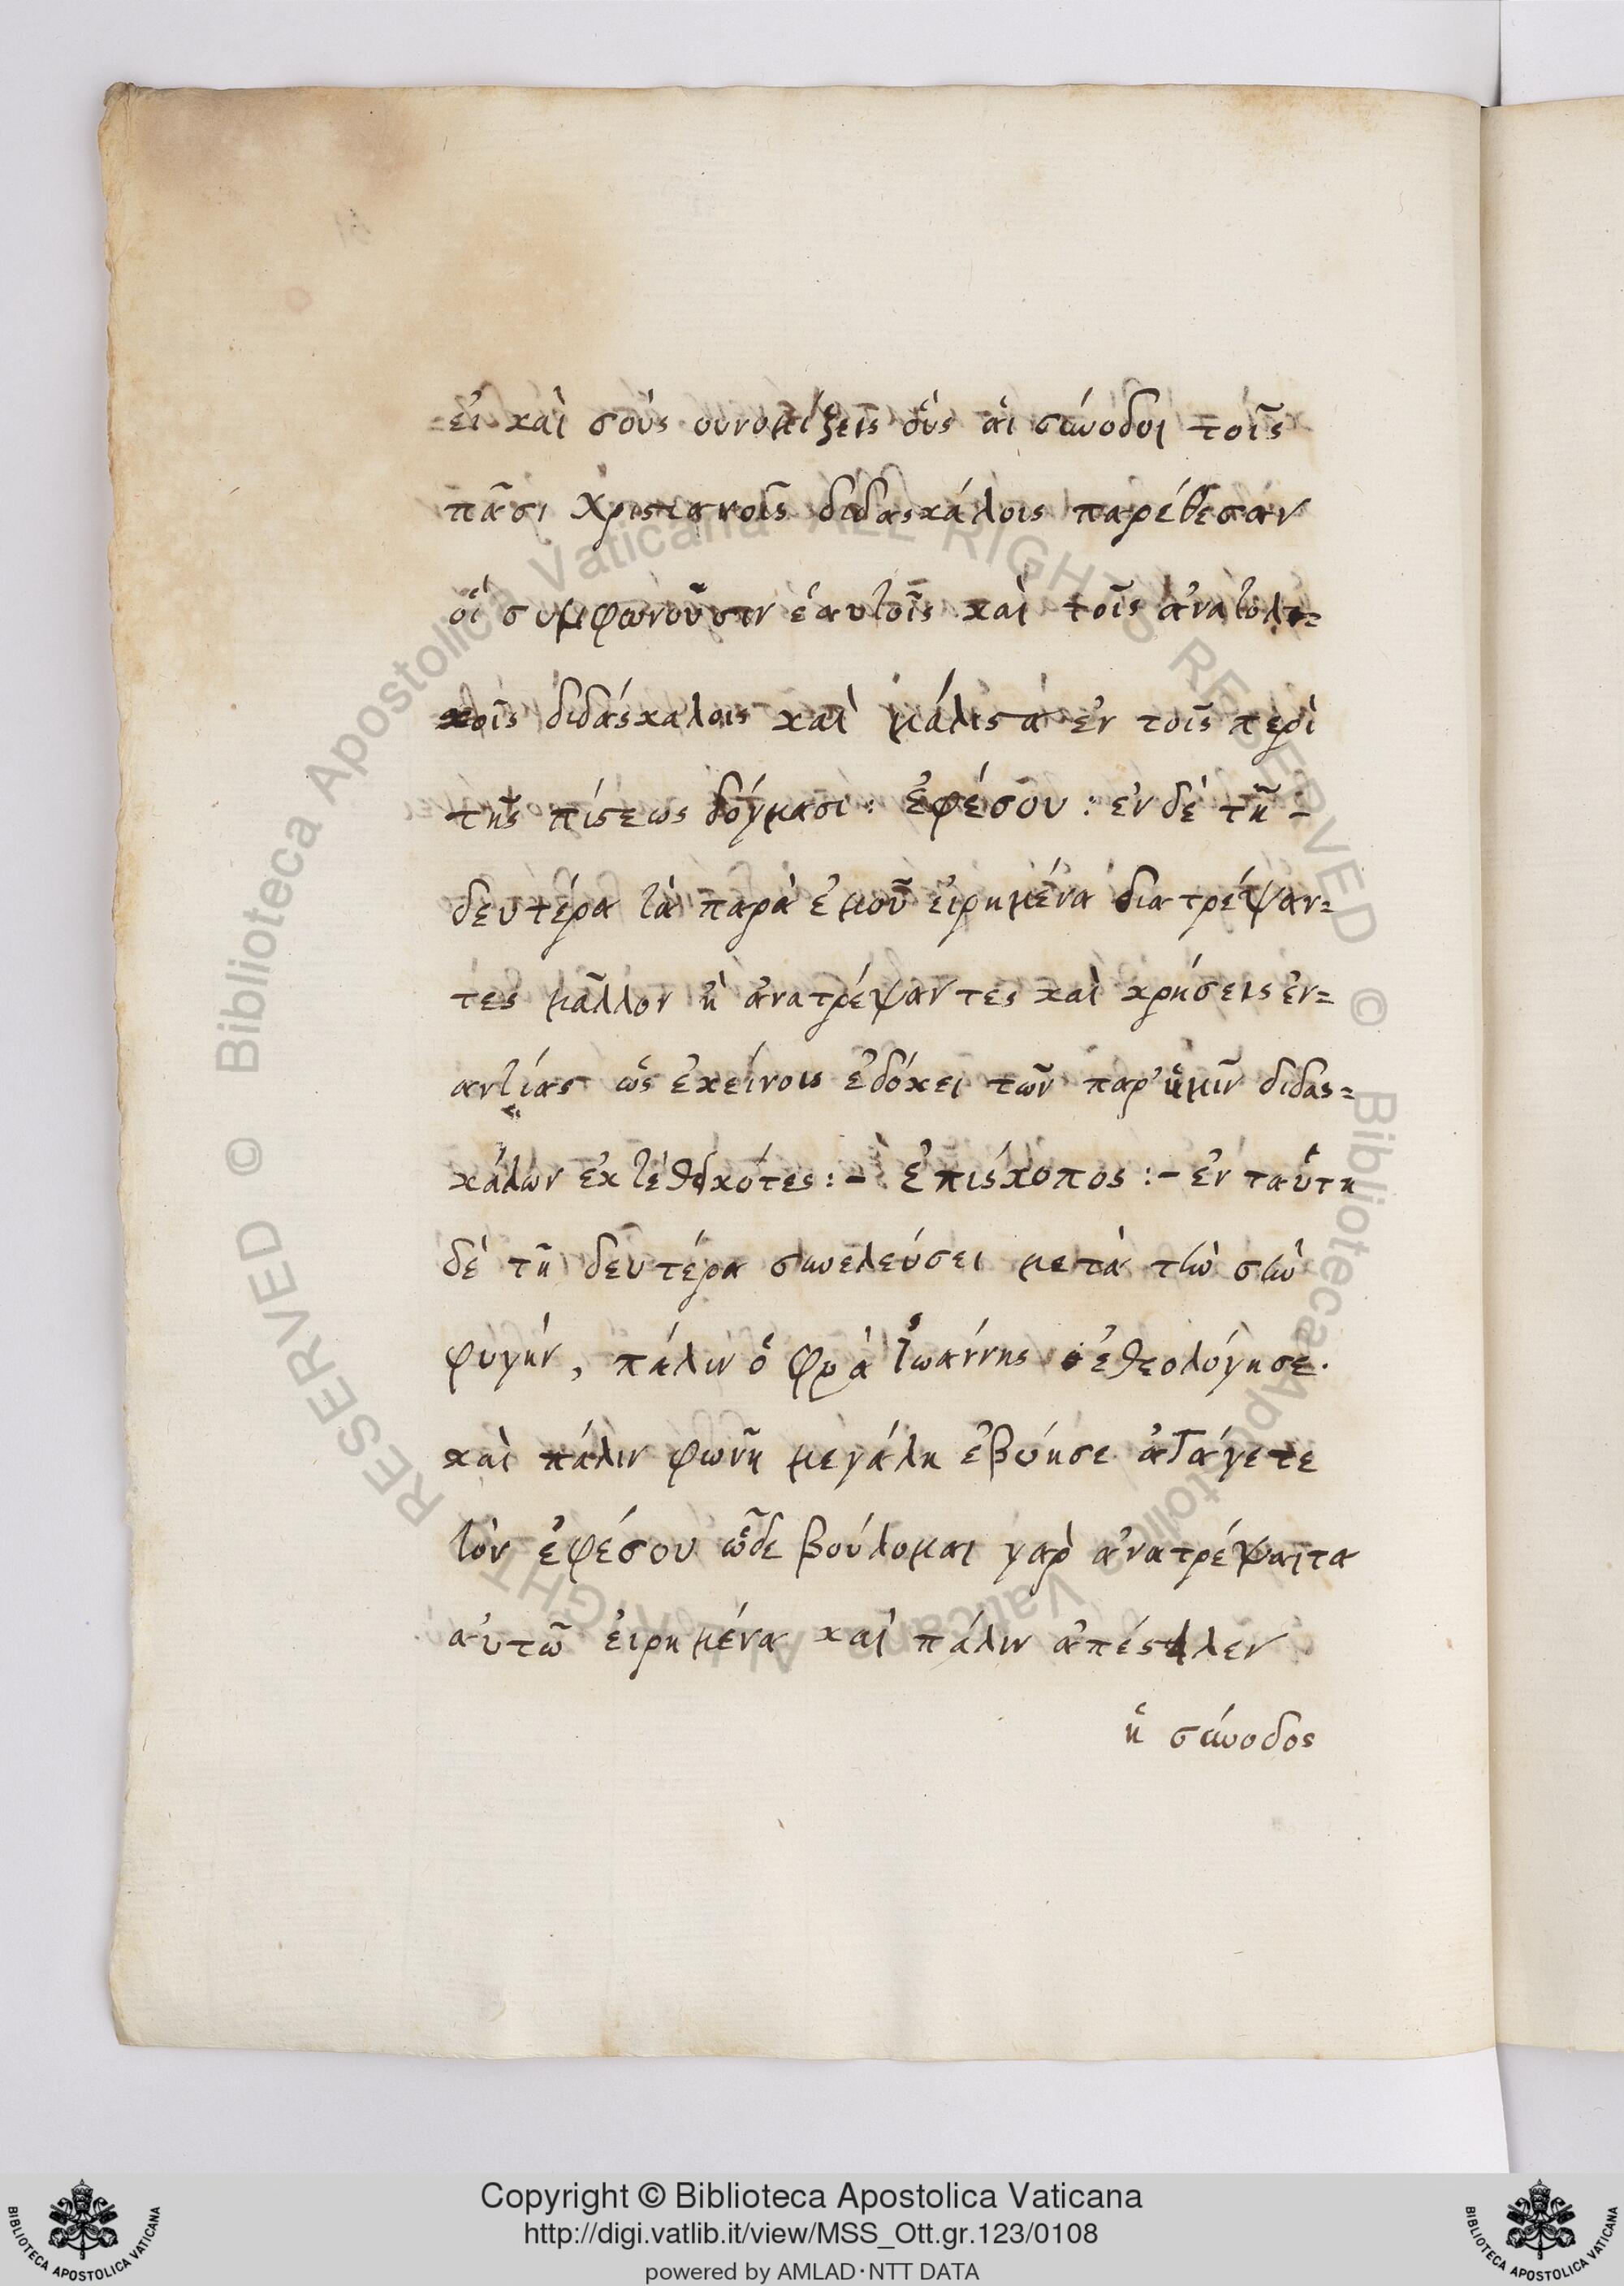 εἰ καὶ σοὺς ουνομίζεις οὓς αἱ σύνοδοι τοῖς
πᾶσι χριστιανοῖς διδασκάλοις παρέθεσαν
οἳ συμφωνοῦσιν ἑαυτοῖς καὶ τοῖς ἀνατολι=
κοῖς διδάσκαλοις καὶ μάλιστα ἐν τοῖς περὶ
τῆς πίστεως δόγμασι: Ἐφέσου: ἐν δὲ τῆ -
δευτέρα τὰ παρὰ ἐμοῦ εἰρημένα διατρέψαν=
τες μᾶλλον ἢ ἀνατρέψαντες καὶ χρήσεις ἐν=
αντίας ὡς ἐκείνοις ἐδόκει τῶν παρ' ἡμῖν διδασ=
κάλων ἐκτεθικότες:- Ἐπίσκοπος:- ἐν ταύτη
δὲ τῆ δευτέρα συνελεύσει μετὰ τὴν σὴν
φυγήν, πάλιν ὁ φρὰ Ἰωάννης ἐθεολόγησε.
καὶ πάλιν φωνῆ μεγάλη ἐβόησε ἀγάγετε
τὸν ἐφέσου ὧδε βούλομαι γαρ ἀνατρέψαι τα
αὐτῶ εἰρημένα καὶ πάλιν ἀπέστιλεν
ἡ σύνοδος
Copyright © Biblioteca Apostolica Vaticana
http://digi.vatlib.it/view/MSS_Ott.gr.123/0108
powered by AMLAD·NTT DATA
BIBLIOTECA APOSTOLICA VATICANA
BIBLIOTECA APOSTOLICA VATICANA
© Biblioteca Apostolica Vaticana ALL RIGHTS RESERVED
© Biblioteca Apostolica Vaticana ALL RIGHTS RESERVED